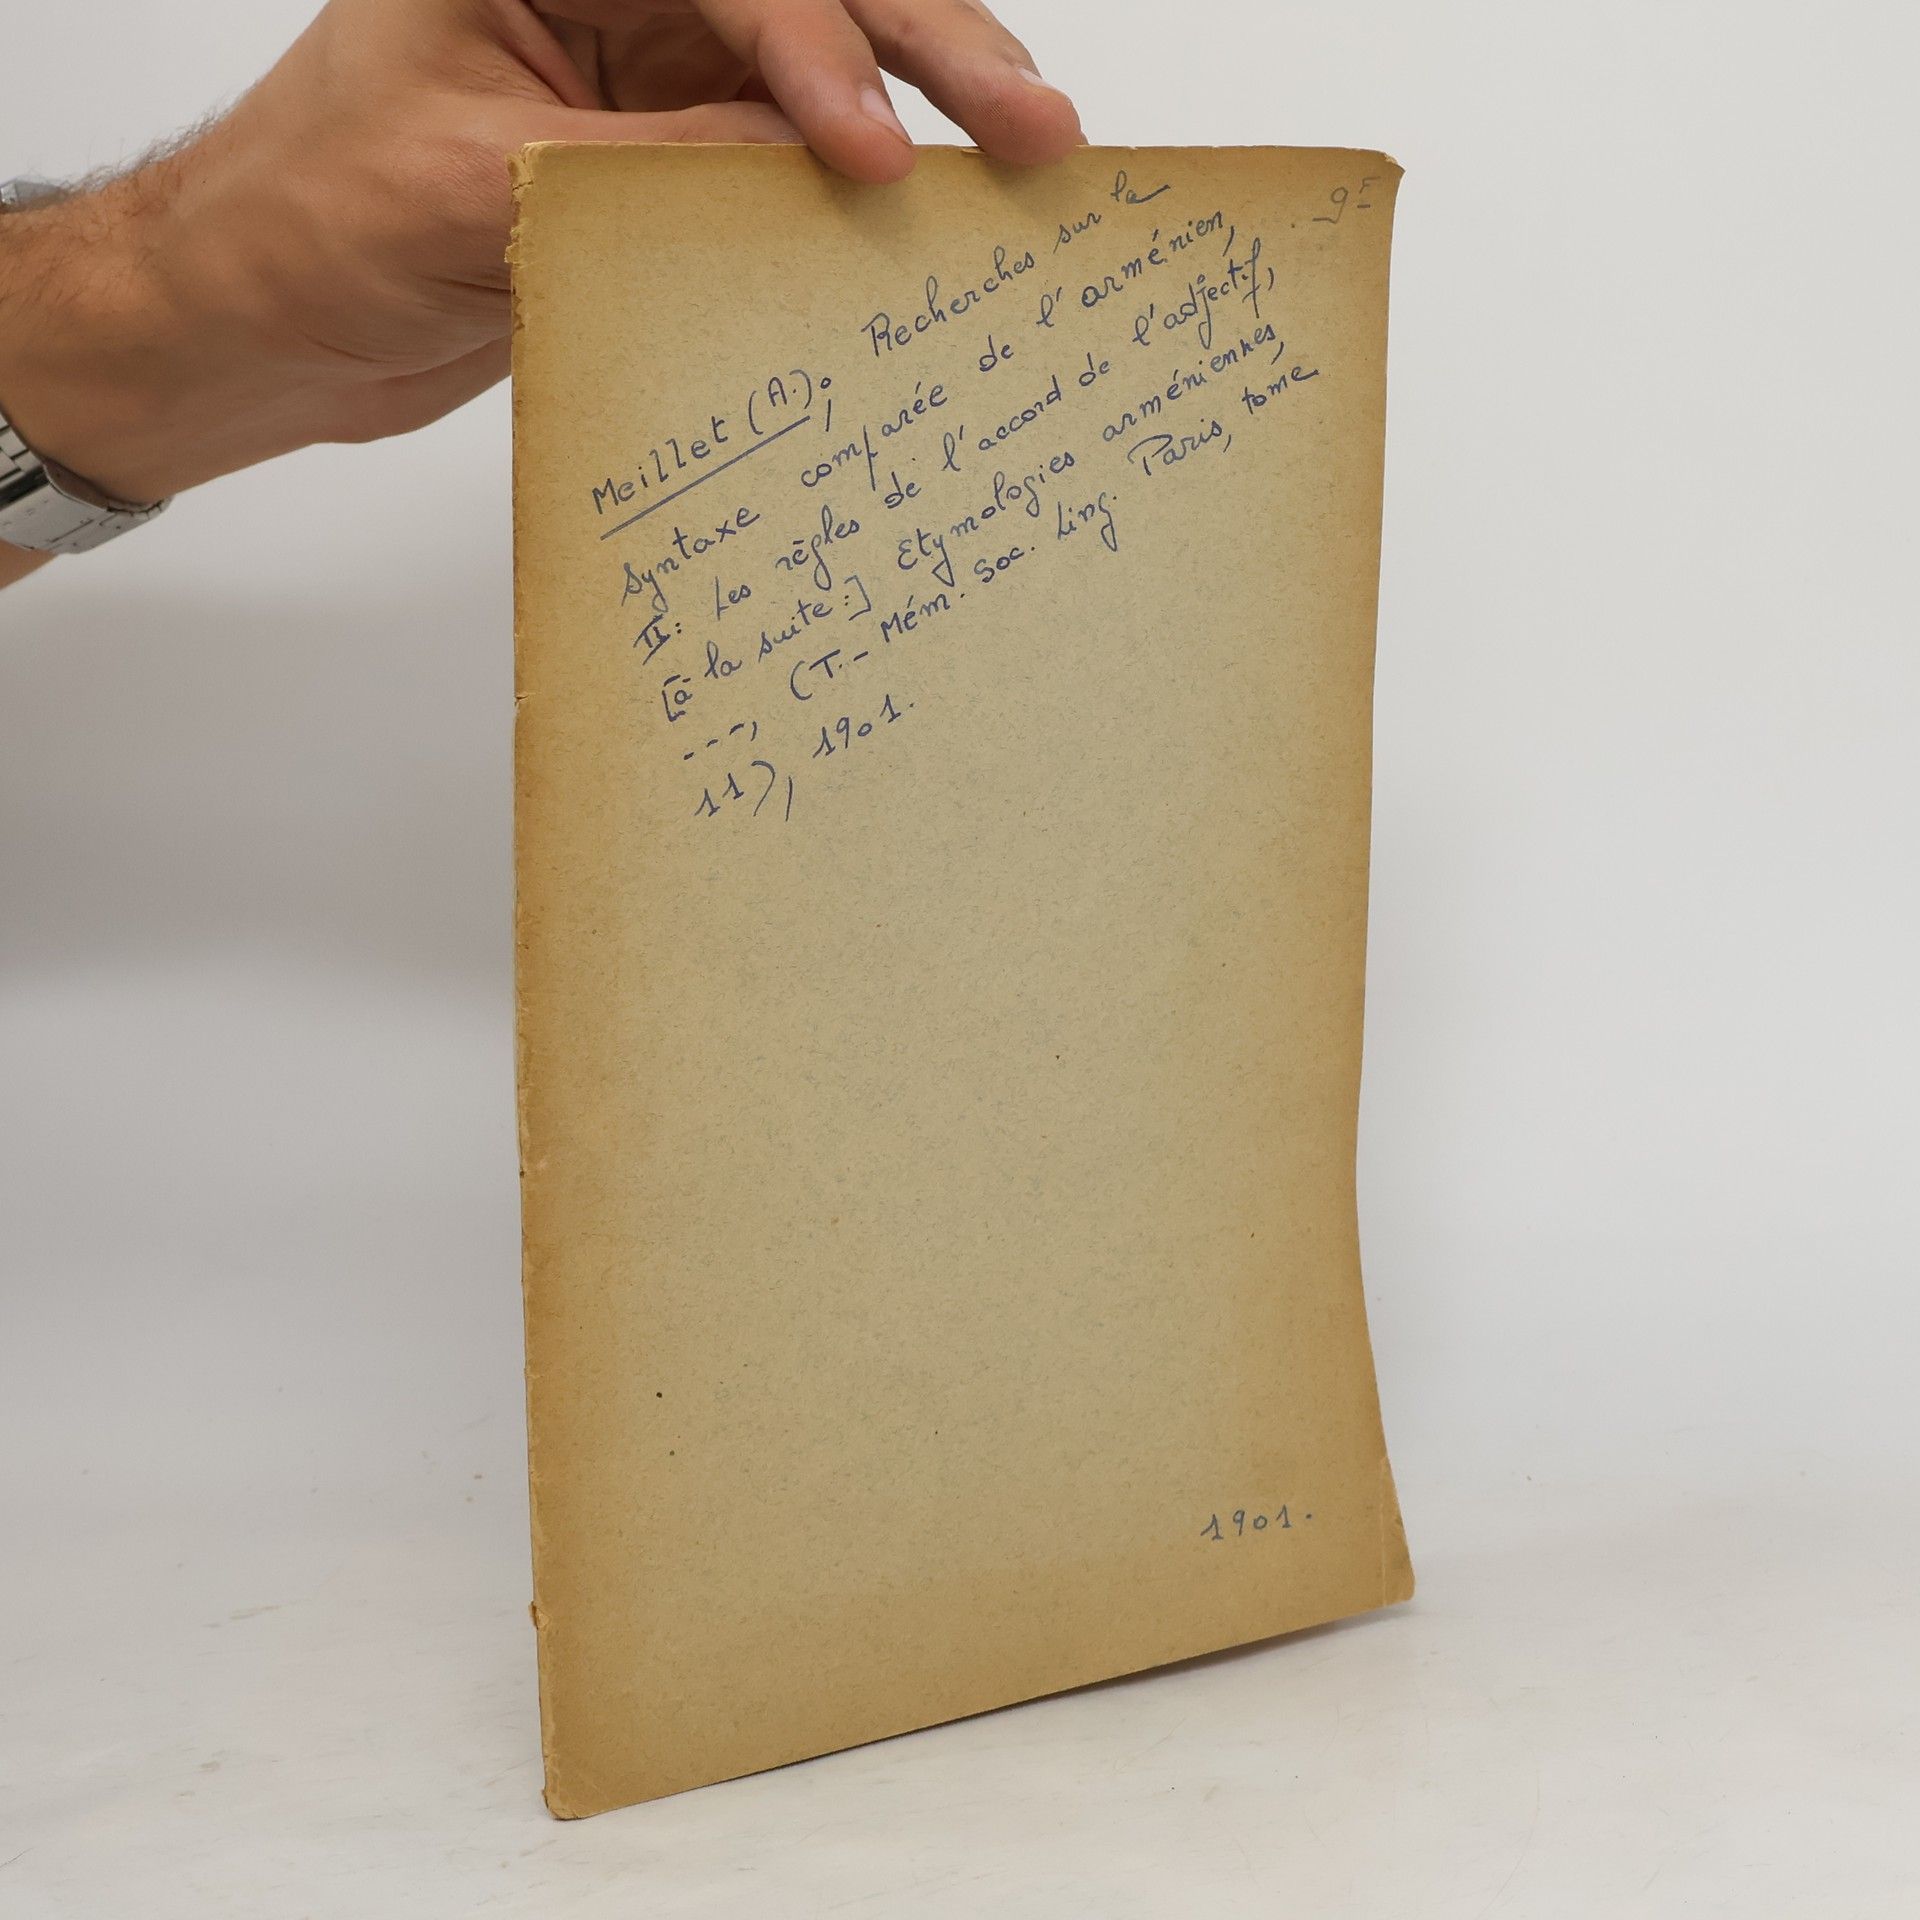 9F
Meillet (A.); Recherches sur la
syntaxe comparée de l'arménien,
II: Les règles de l'accord de l'adjectif,
[à la suite:] Etymologies arméniennes,
---, (T.- Mém. Soc. Ling. Paris, tome
11), 1901.
1901.